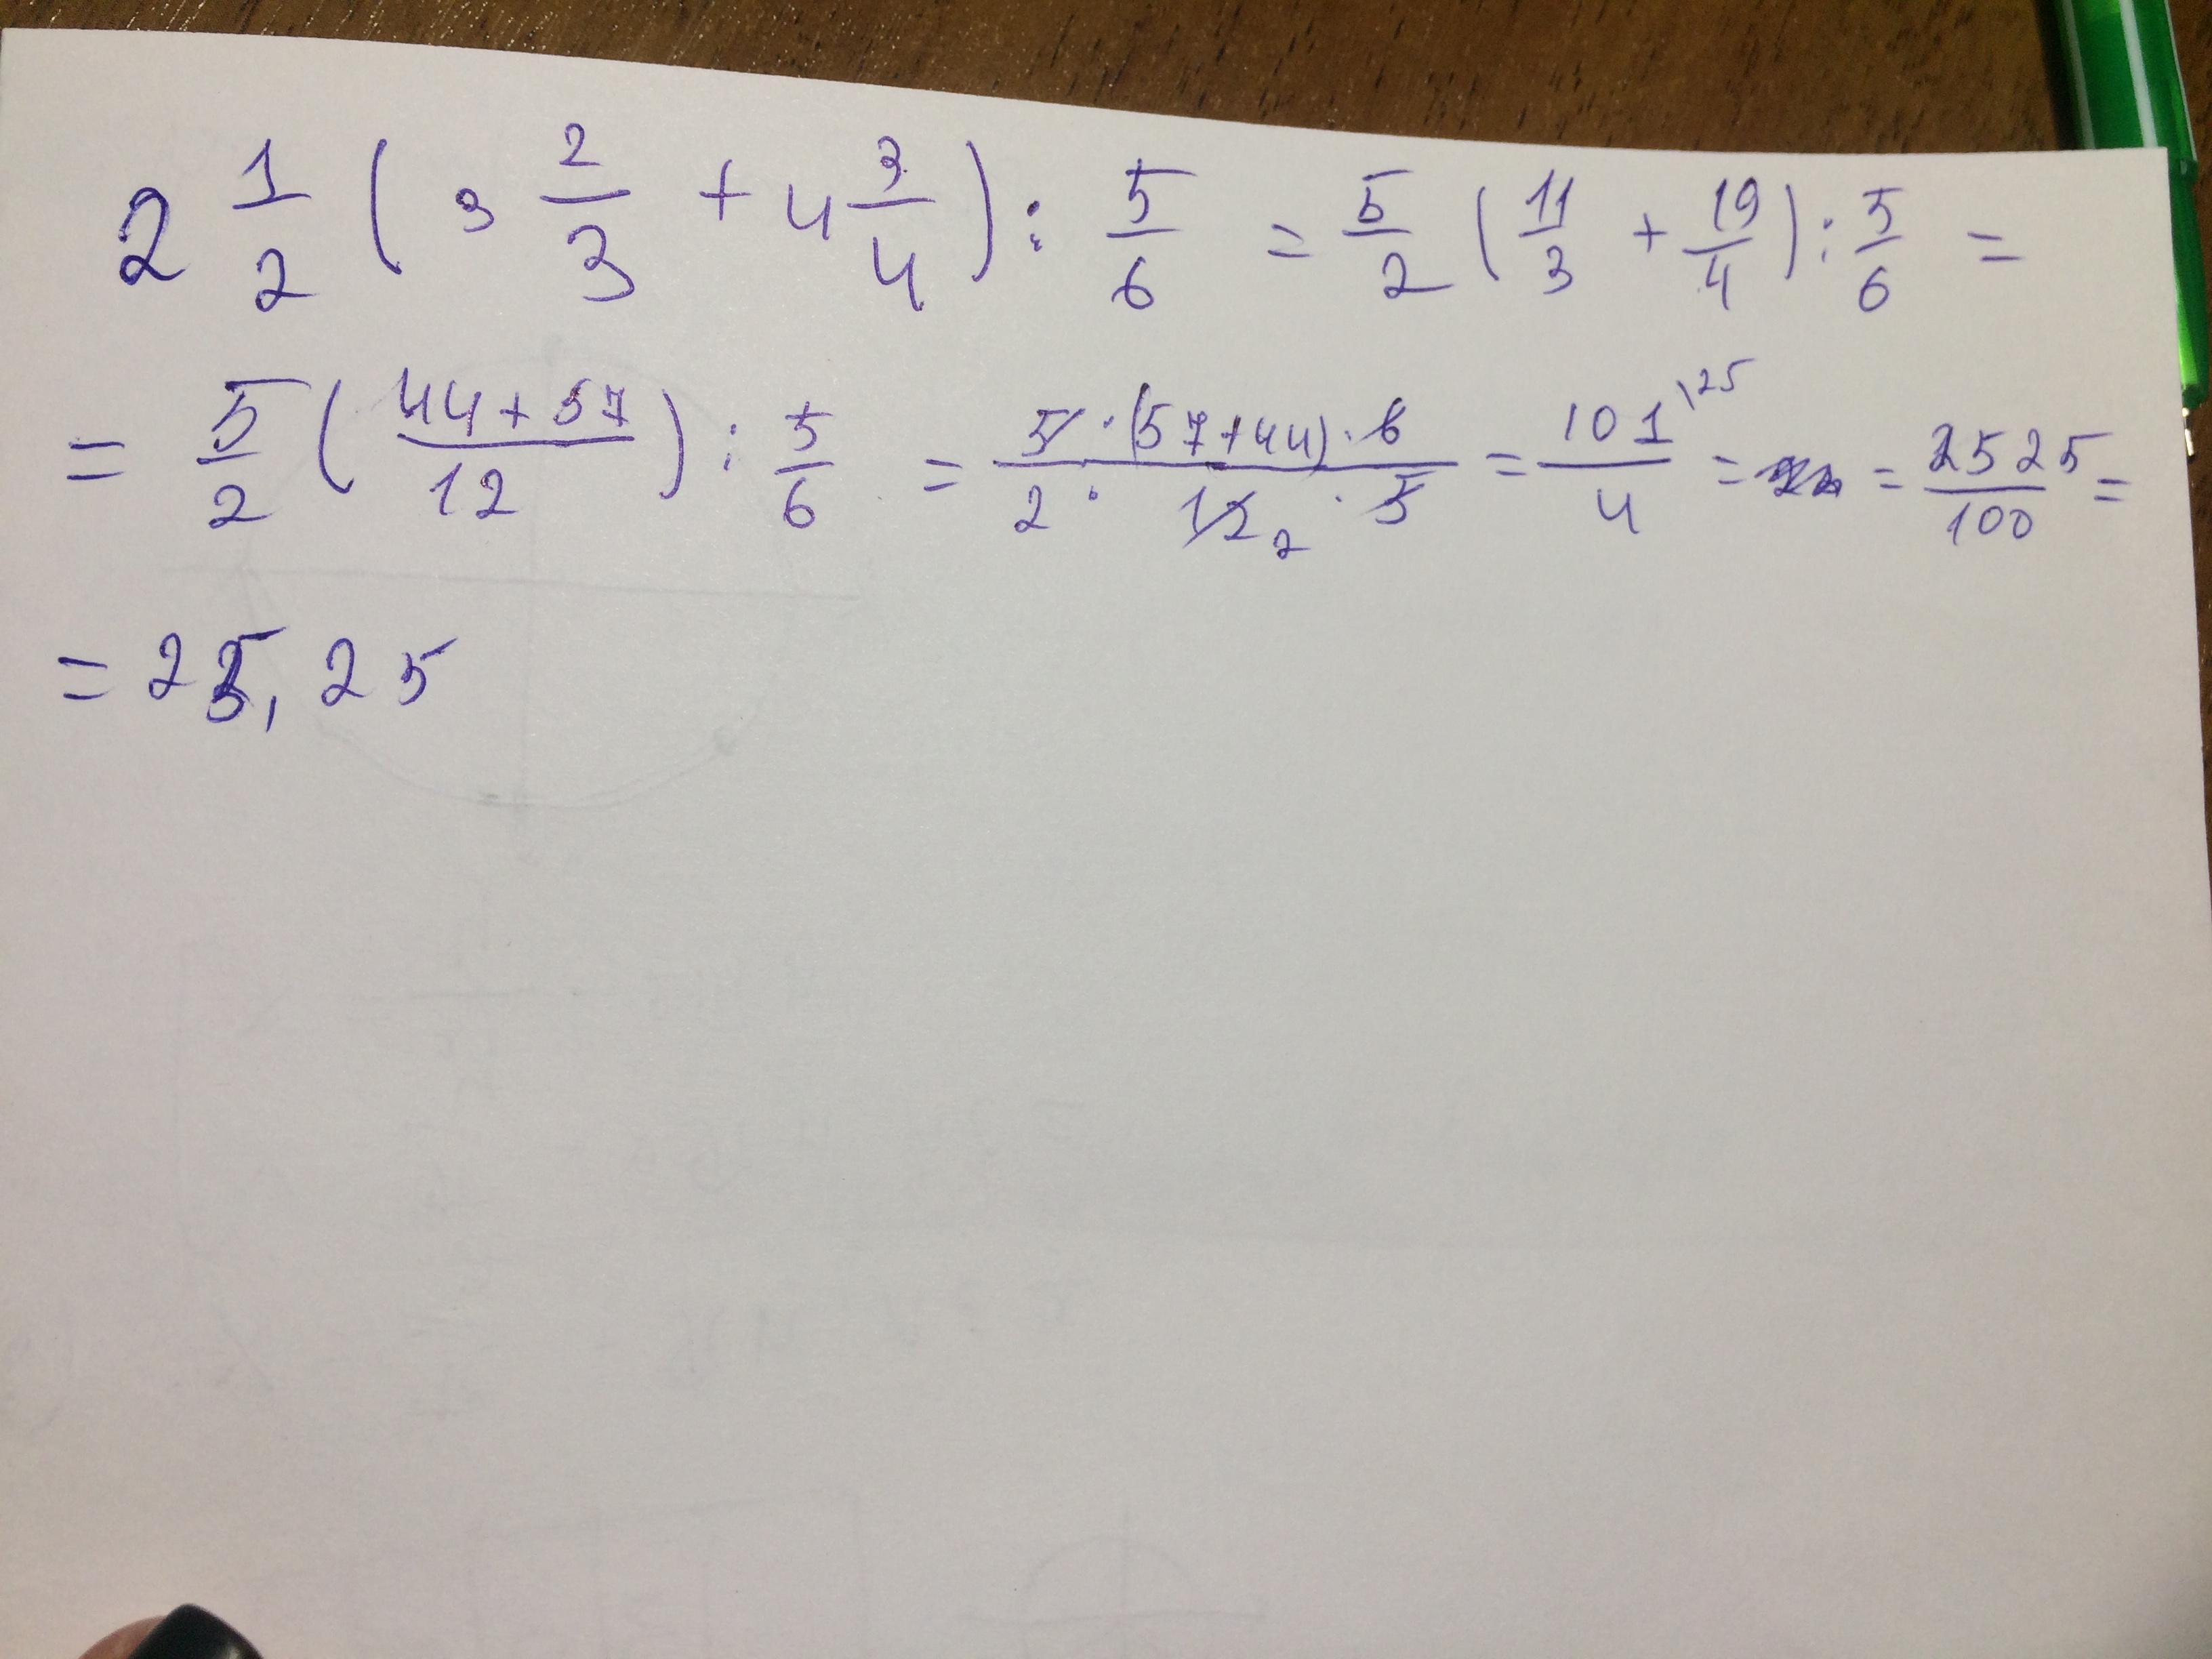 2 1/2 ( 3 2/3 + 4 3/4 ) : 5/6 = 5/2 ( 11/3 + 19/4 ) : 5/6 =
= 5/2 ( (44+57)/12 ) : 5/6 = (5 · (57+44) · 6)/(2 · 12 2 · 5) = 101\25/4 = = 2525/100 =
= 25,25